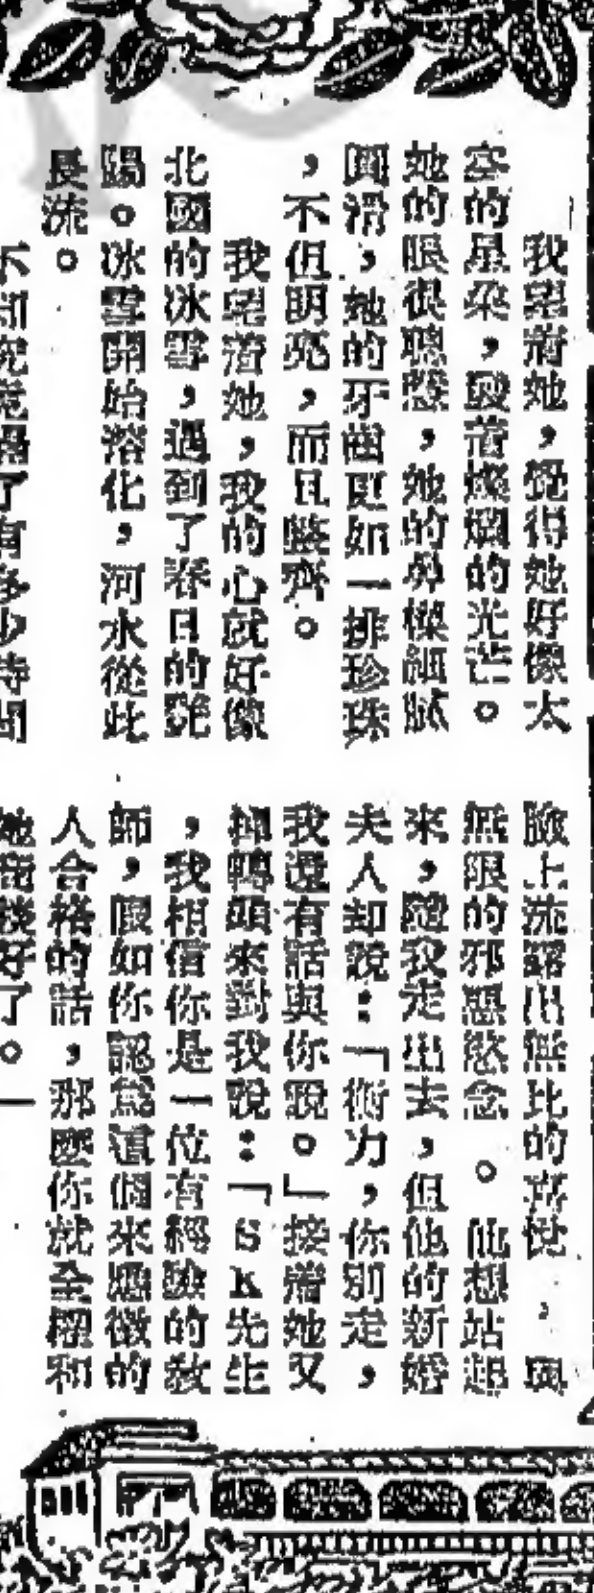 我望着她，覺得她好像太
空的星朵，發着燦爛的光芒。
她的眼很聰慧，她的鼻樑細膩
圓滑，她的牙齒更如一排珍珠
，不但明亮，而且整齊。
我望着她，我的心就好像
北國的冰雪，遇到了春日的艷
陽。冰雪開始溶化，河水從此
長流。
臉上流露出無比的喜悅，與
無限的邪惡慾念。他想站起
來，隨我走出去，但他的新婚
夫人却說：「衡力，你別走，
我還有話與你說。」接着她又
掉轉頭來對我說：「SK先生
，我相信你是一位有經驗的教
師，假如你認爲這個來應徵的
人合格的話，那麼你就全權和